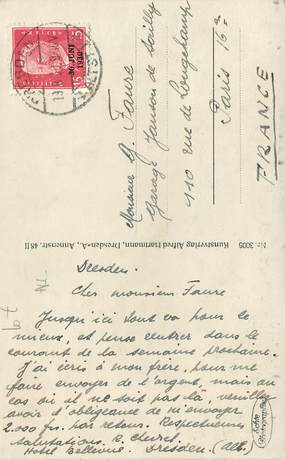 Monsieur G. Faure
Garage Janson de Sailly
110 rue de Longchamp
Paris 16e
FRANCE
30. JUNI
1930
15 15
Nr. 3005 Kunstverlag Alfred Hartmann, Dresden-A., Annenstr. 48 II
Dresden.
Cher monsieur Faure
Jusqu'ici tout va pour le
mieux, et pense rentrer dans le
courant de la semaine prochaine.
J'ai écris à mon frère, pour me
faire envoyer de l'argent, mais au
cas où il ne soit pas là, veuillez
avoir l'obligeance de m'envoyer
2.000 frs. par retour. Respectueuses
salutations. R.
Hotel Bellevue. Dresden. (All.)